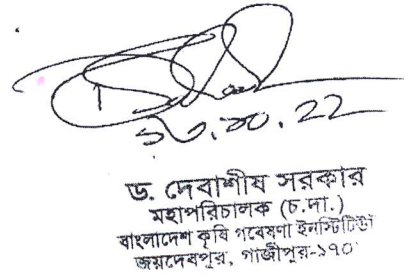 ১৬.১০.২২
ড. দেবাশীষ সরকার
মহাপরিচালক (চ.দা.)
বাংলাদেশ কৃষি গবেষণা ইনস্টিটিউট
জয়দেবপুর, গাজীপুর-১৭০